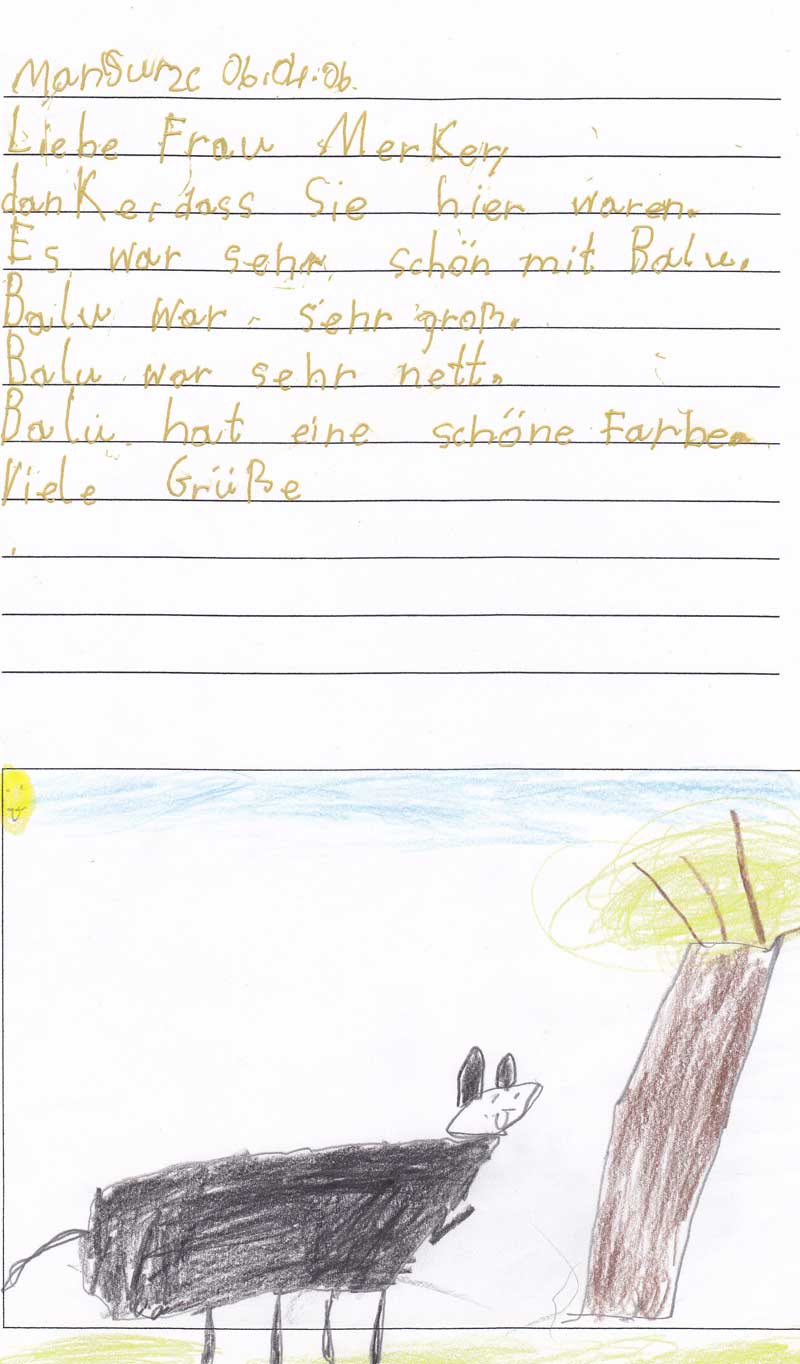 06.04.06.
Liebe Frau Merker,
danke, dass Sie hier waren.
Es war sehr schön mit Balu.
Balu war sehr groß.
Balu war sehr nett.
Balu hat eine schöne Farbe.
Viele Grüße